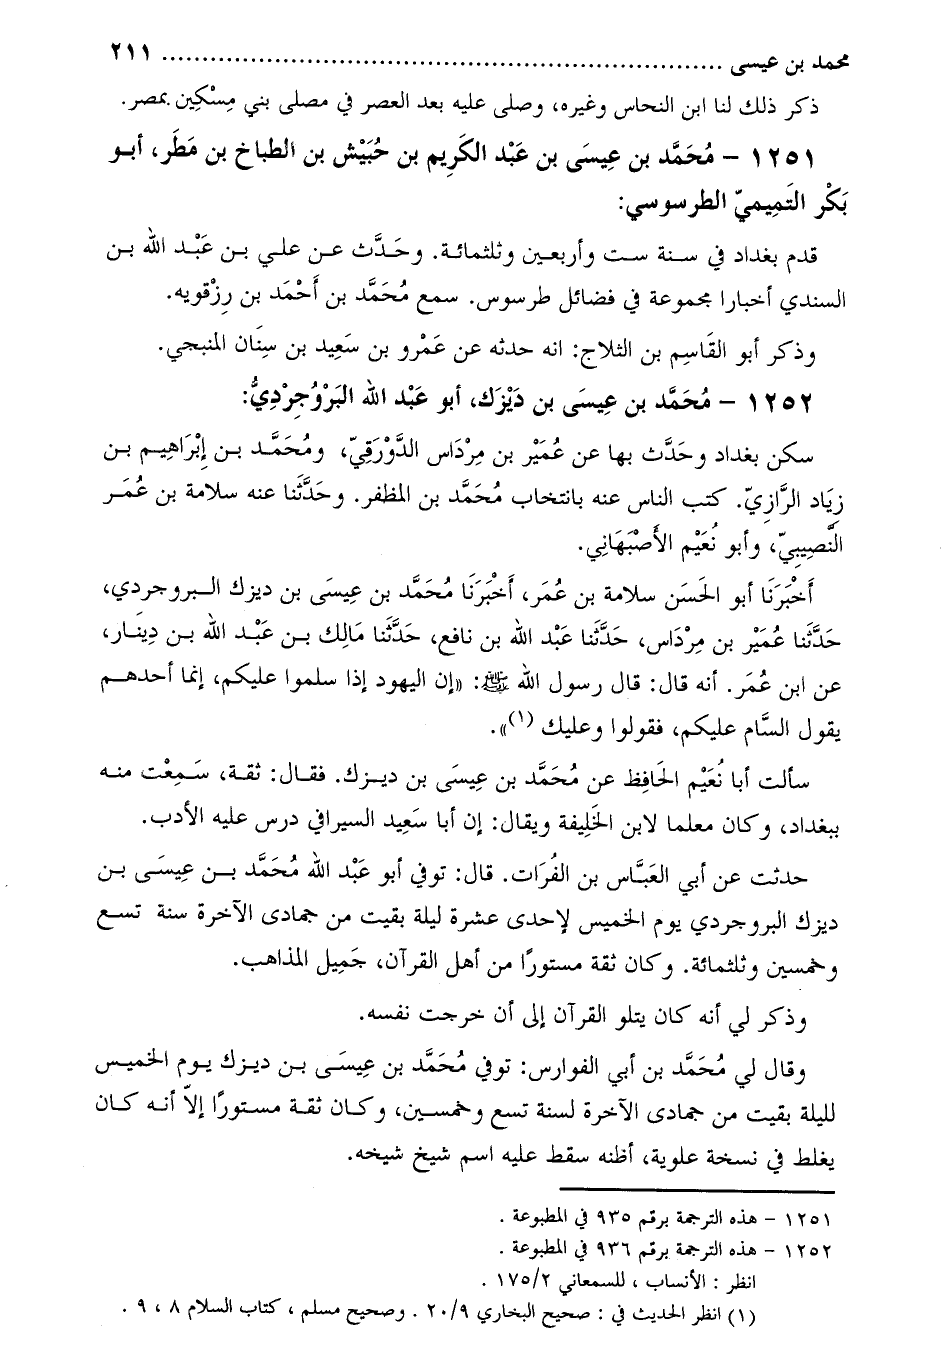 محمد بن عيسى ........................................................................ ٢١١
ذكر ذلك لنا ابن النحاس وغيره، وصلى عليه بعد العصر في مصلى بني مِسْكِين بمصر.
١٢٥١ – مُحَمَّد بن عِيسَى بن عَبْد الكَرِيم بن حُبَيْش بن الطباخ بن مَطَر، أبو
بَكْر التَمِيميّ الطرسوسي:
قدم بغداد في سنة ست وأربعين وثلثمائة. وحَدَّث عن علي بن عَبْد الله بن
السندي أخبارا مجموعة في فضائل طرسوس. سمع مُحَمَّد بن أَحْمَد بن رِزْقويه.
وذكر أبو القَاسِم بن الثلاج: انه حدثه عن عَمْرو بن سَعِيد بن سِنَان المنبجي.
١٢٥٢ – مُحَمَّد بن عِيسَى بن دَيْزَك، أبو عَبْد الله البَرُوجِرْدِيُّ:
سكن بغداد وحَدَّث بها عن عُمَيْر بن مِرْدَاس الدَّوْرَقِيّ، ومُحَمَّد بن إِبْرَاهِيم بن
زِيَاد الرَّازِيّ. كتب الناس عنه بانتخاب مُحَمَّد بن المظفر. وحَدَّثَنا عنه سلامة بن عُمَر
النَّصِيبِيّ، وأبو نُعَيْم الأَصْبَهَانِي.
أَخْبَرَنَا أبو الحَسَن سلامة بن عُمَر، أَخْبَرَنَا مُحَمَّد بن عِيسَى بن ديزك البروجردي،
حَدَّثَنا عُمَيْر بن مِرْدَاس، حَدَّثَنا عَبْد الله بن نافع، حَدَّثَنا مَالِك بن عَبْد الله بن دِينَار،
عن ابن عُمَر. أنه قال: قال رسول الله ﷺ: «إن اليهود إذا سلموا عليكم، إنما أحدهم
يقول السَّام عليكم، فقولوا وعليك (١)».
سألت أبا نُعَيْم الحَافِظ عن مُحَمَّد بن عِيسَى بن ديزك. فقال: ثقة، سَمِعْت منه
ببغداد، وكان معلما لابن الخَلِيفة ويقال: إن أبا سَعِيد السيرافي درس عليه الأدب.
حدثت عن أبي العَبَّاس بن الفُرَات. قال: توفي أبو عَبْد الله مُحَمَّد بن عِيسَى بن
ديزك البروجردي يوم الخميس لإحدى عشرة ليلة بقيت من جمادى الآخرة سنة تسع
وخمسين وثلثمائة. وكان ثقة مستورًا من أهل القرآن، جَمِيل المذاهب.
وذكر لي أنه كان يتلو القرآن إلى أن خرجت نفسه.
وقال لي مُحَمَّد بن أبي الفوارس: توفي مُحَمَّد بن عِيسَى بن ديزك يوم الخميس
لليلة بقيت من جمادى الآخرة لسنة تسع وخمسين، وكان ثقة مستورًا إلاّ أنه كان
يغلط في نسخة علوية، أظنه سقط عليه اسم شيخ شيخه.
١٢٥١ – هذه الترجمة برقم ٩٣٥ في المطبوعة .
١٢٥٢ – هذه الترجمة برقم ٩٣٦ في المطبوعة .
انظر : الأنساب ، للسمعاني ١٧٥/٢ .
(١) انظر الحديث في : صحيح البخاري ٢٠/٩ . وصحيح مسلم ، كتاب السلام ٨ ، ٩ .